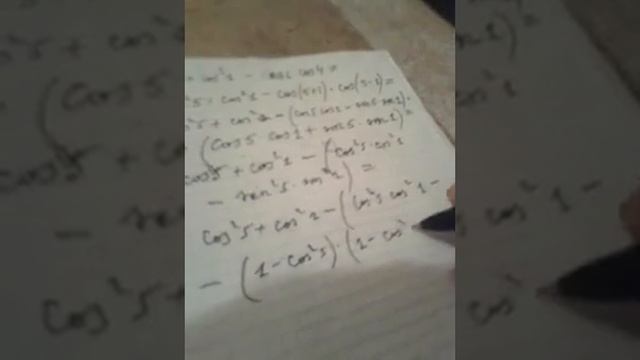 cos²1 - cos6 cos4 =
cos²5 + cos²1 - cos(5+1)·cos(5-1) =
cos²5 + cos²1 - (cos5 cos1 - sen5·sen1)·
(cos5·cos1 + sen5·sen1) =
cos²5 + cos²1 - (cos²5·cos²1
- sen²5·sen²1) =
cos²5 + cos²1 - (cos²5 cos²1 -
- (1-cos²5)·(1-cos²